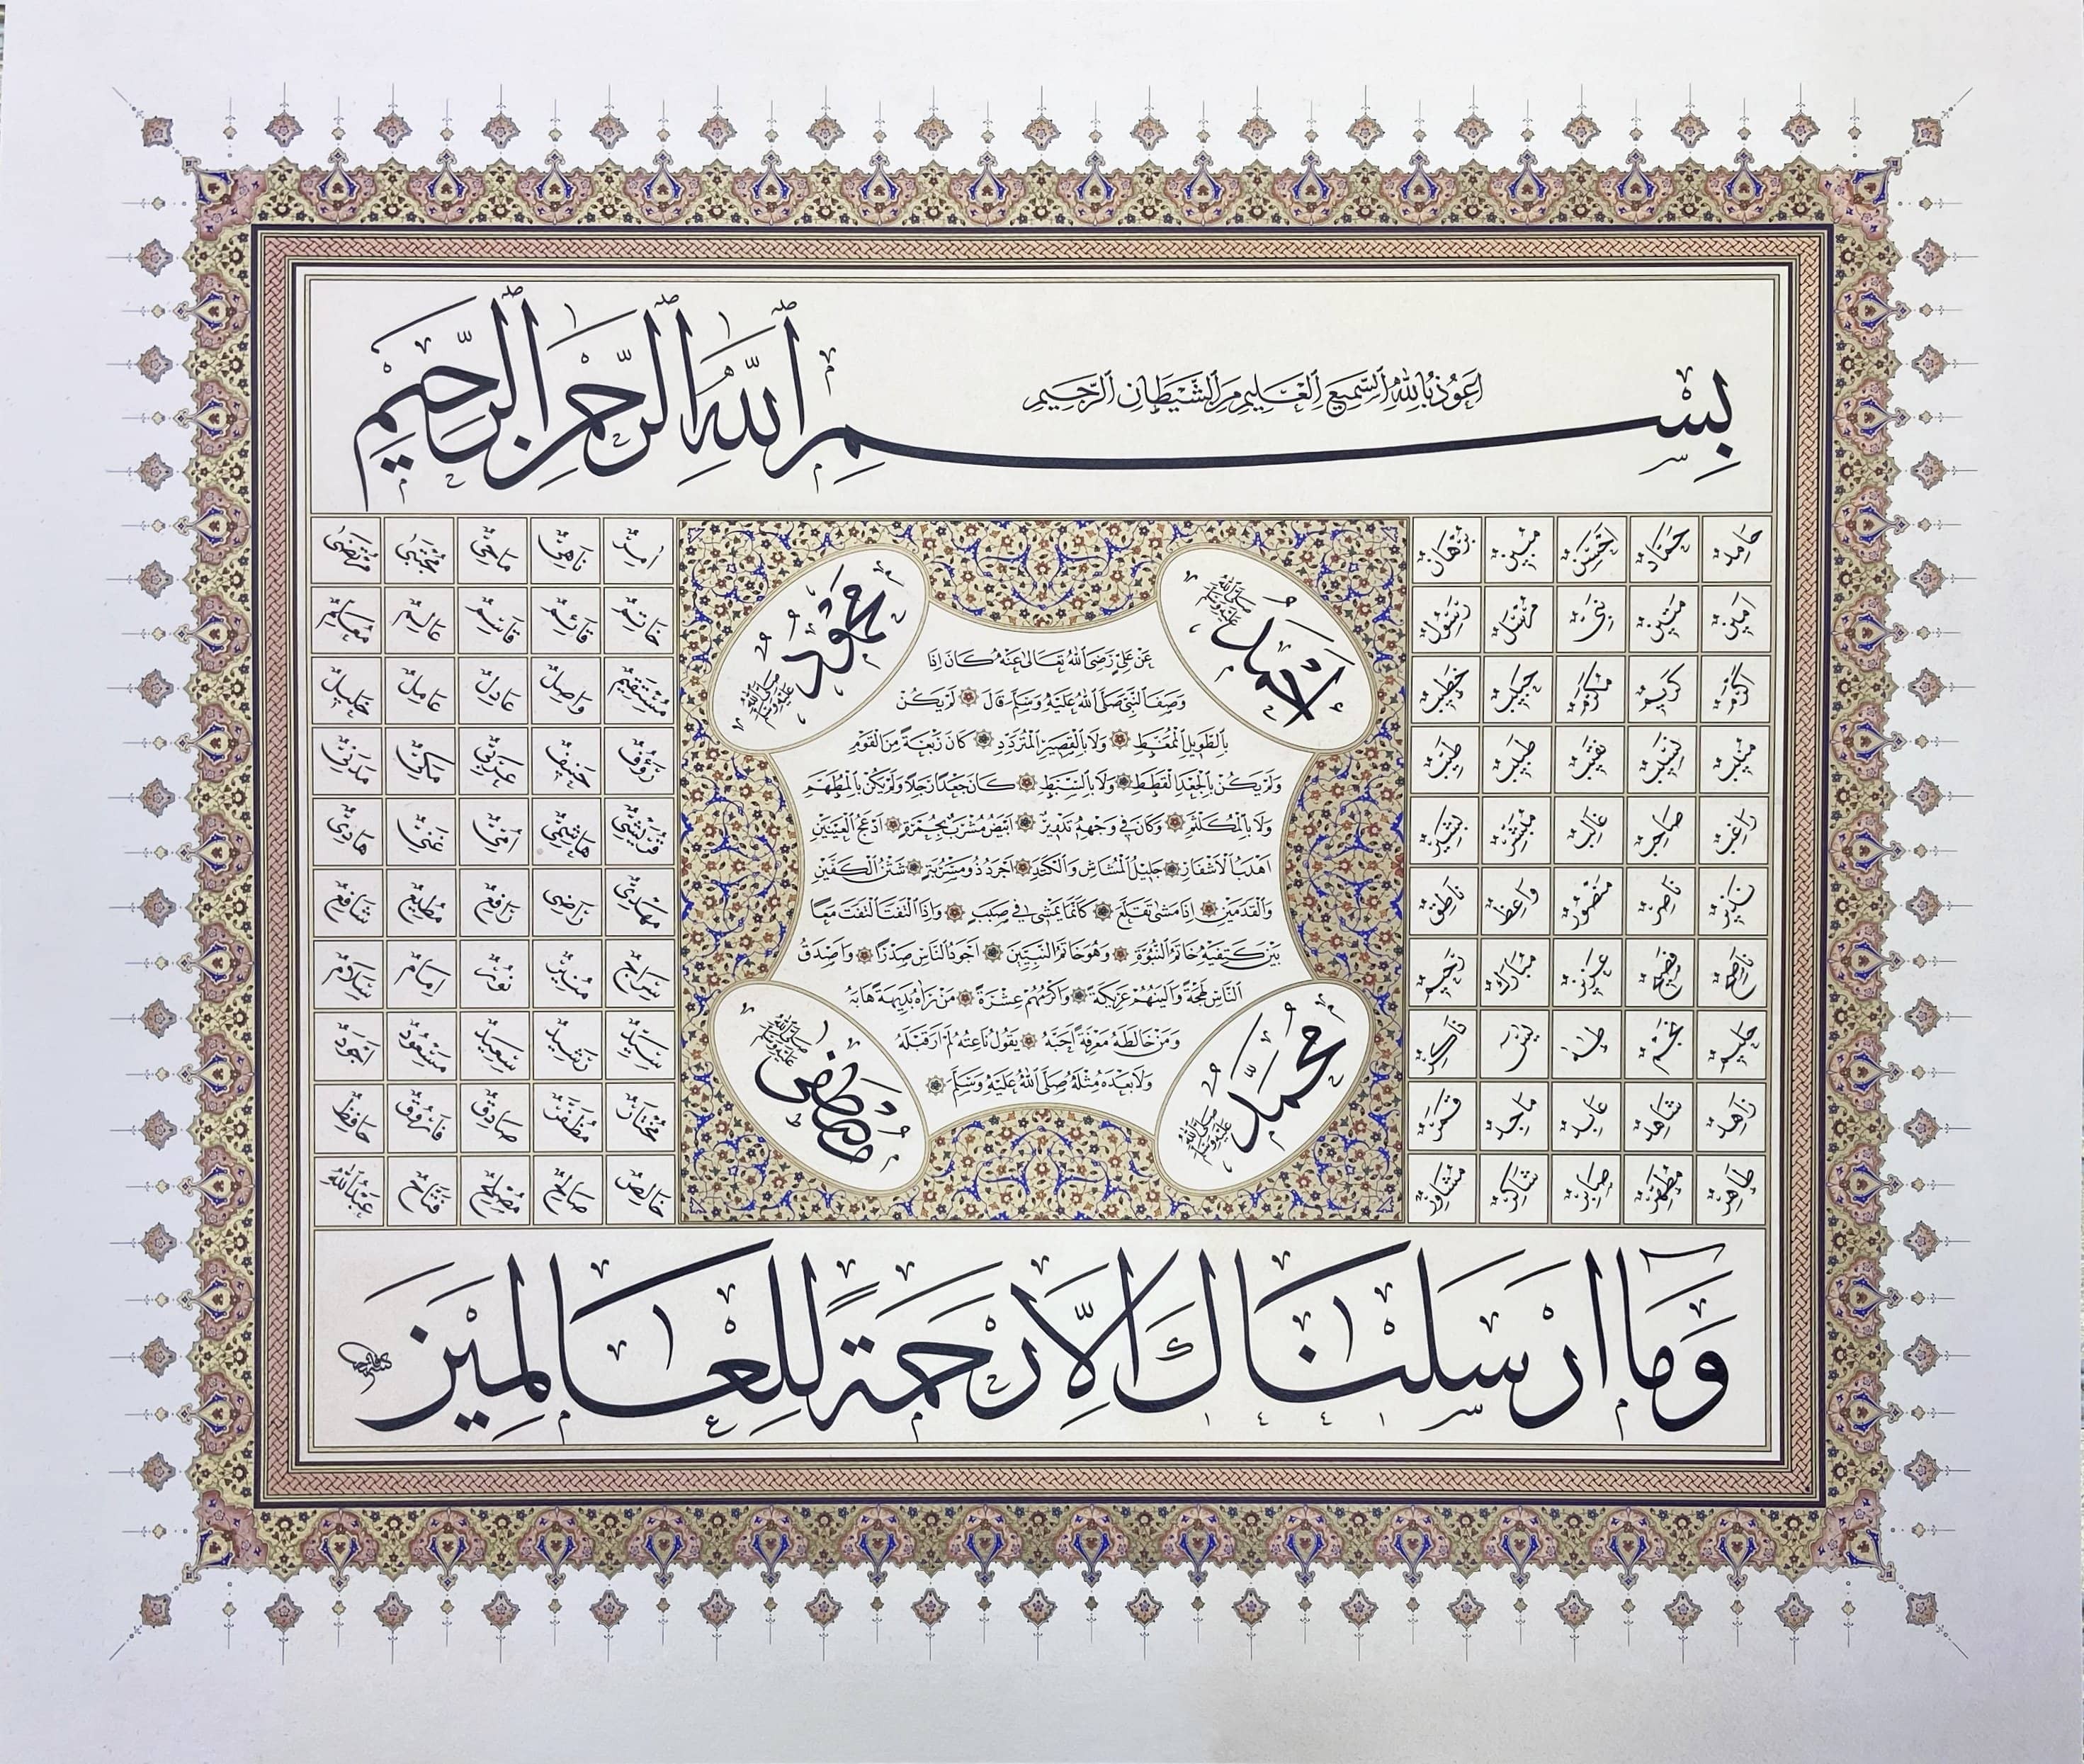 بِسْمِ اللهِ الرَّحْمٰنِ الرَّحِيمِ
اَعُوذُ بِاللهِ السَّمِيعِ الْعَلِيمِ مِنَ الشَّيْطَانِ الرَّجِيمِ
حَامِدٌ حَمَّادٌ اَحْسَنُ مُبِينٌ بُرْهَانٌ
اَمِينٌ مَتِينٌ نَبِيٌّ مُرْسَلٌ رَسُولٌ
اَكْرَمُ كَرِيمٌ مُكَرَّمٌ حَبِيبٌ خَطِيبٌ
مُنِيبٌ نَسِيبٌ نَقِيبٌ طَبِيبٌ طَيِّبٌ
رَاغِبٌ صَاحِبٌ غَالِبٌ مُبَشِّرٌ بَشِيرٌ
نَذِيرٌ نَاصِرٌ مَنْصُورٌ وَاعِظٌ نَاطِقٌ
نَاصِحٌ فَصِيحٌ عَزِيزٌ مُبَارَكٌ رَحِيمٌ
حَلِيمٌ نَجْمٌ طٰهٰ يٰسٓ ذَاكِرٌ
زَاهِدٌ شَاهِدٌ عَابِدٌ مَاجِدٌ قَمَرٌ
طَاهِرٌ مُطَهَّرٌ صَابِرٌ شَاكِرٌ مُشَاوِرٌ
اَحْمَدُ صَلَّى اللهُ عَلَيْهِ وَسَلَّمَ
مَحْمُودٌ صَلَّى اللهُ عَلَيْهِ وَسَلَّمَ
عَنْ عَلِيٍّ رَضِيَ اللهُ تَعَالٰى عَنْهُ كَانَ اِذَا
وَصَفَ النَّبِيَّ صَلَّى اللهُ عَلَيْهِ وَسَلَّمَ قَالَ لَمْ يَكُنْ
بِالطَّوِيلِ الْمُمَّغِطِ وَلَا بِالْقَصِيرِ الْمُتَرَدِّدِ كَانَ رَبْعَةً مِنَ الْقَوْمِ
وَلَمْ يَكُنْ بِالْجَعْدِ الْقَطَطِ وَلَا بِالسَّبْطِ كَانَ جَعْدًا رَجِلًا وَلَمْ يَكُنْ بِالْمُطَهَّمِ
وَلَا بِالْمُكَلْثَمِ وَكَانَ فِي وَجْهِهِ تَدْوِيرٌ اَبْيَضُ مُشْرَبٌ بِحُمْرَةٍ اَدْعَجُ الْعَيْنَيْنِ
اَهْدَبُ الْاَشْفَارِ جَلِيلُ الْمُشَاشِ وَالْكَتَدِ اَجْرَدُ ذُو مَسْرُبَةٍ شَثْنُ الْكَفَّيْنِ
وَالْقَدَمَيْنِ اِذَا مَشٰى تَقَلَّعَ كَاَنَّمَا يَمْشِي فِي صَبَبٍ وَاِذَا الْتَفَتَ الْتَفَتَ مَعًا
بَيْنَ كَتِفَيْهِ خَاتَمُ النُّبُوَّةِ وَهُوَ خَاتَمُ النَّبِيِّينَ اَجْوَدُ النَّاسِ صَدْرًا وَاَصْدَقُ
النَّاسِ لَهْجَةً وَاَلْيَنُهُمْ عَرِيكَةً وَاَكْرَمُهُمْ عِشْرَةً مَنْ رَاٰهُ بَدِيهَةً هَابَهُ
وَمَنْ خَالَطَهُ مَعْرِفَةً اَحَبَّهُ يَقُولُ نَاعِتُهُ لَمْ اَرَ قَبْلَهُ
وَلَا بَعْدَهُ مِثْلَهُ صَلَّى اللهُ عَلَيْهِ وَسَلَّمَ
مُحَمَّدٌ صَلَّى اللهُ عَلَيْهِ وَسَلَّمَ
مُصْطَفٰى صَلَّى اللهُ عَلَيْهِ وَسَلَّمَ
نَاهِيٌ مَاحِيٌ مُجْتَبٰى مُرْتَضٰى
خَاتِمٌ قَائِمٌ قَاسِمٌ عَالِمٌ مُعَلِّمٌ
مُسْتَقِيمٌ وَاصِلٌ عَادِلٌ عَامِلٌ خَلِيلٌ
رَؤُفٌ حَنِيفٌ عَرَبِيٌّ مَكِّيٌّ مَدَنِيٌّ
قُرَيْشِيٌّ هَاشِمِيٌّ اُمِّيٌّ غَنِيٌّ هَادِيٌ
مَهْدِيٌّ رَاضِي رَافِعٌ مُطِيعٌ شَافِعٌ
سِرَاجٌ مُنِيرٌ نُورٌ اِمَامٌ سَلَامٌ
سَيِّدٌ رَشِيدٌ سَعِيدٌ مَسْعُودٌ اَجْوَدُ
مُخْتَارٌ مُظَفَّرٌ صَادِقٌ فَارُوقٌ حَافِظٌ
خَالِصٌ صَالِحٌ مُصْلِحٌ فَتَّاحٌ عَبْدُ اللهِ
وَمَٓا اَرْسَلْنَاكَ اِلَّا رَحْمَةً لِلْعَالَمِينَ